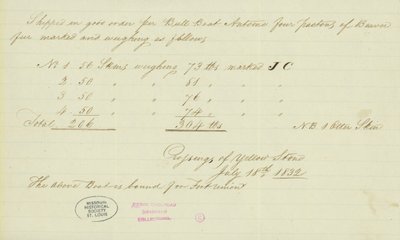 Shipped in good order per Bull Boat Antoine four packons of Beaver
fur marked and weighing as follows
No 1 56 Skins weighing 73 lbs marked J C
2 50 " " 81 "
3 50 " " 76 "
4 50 " " 74 "
Total 206 304 lbs N.B 1 Otter Skin
Crossings of Yellow Stone
July 18th 1832
The above Boat is bound for Fort Union
MISSOURI
HISTORICAL
SOCIETY
ST. LOUIS
COLLECTION